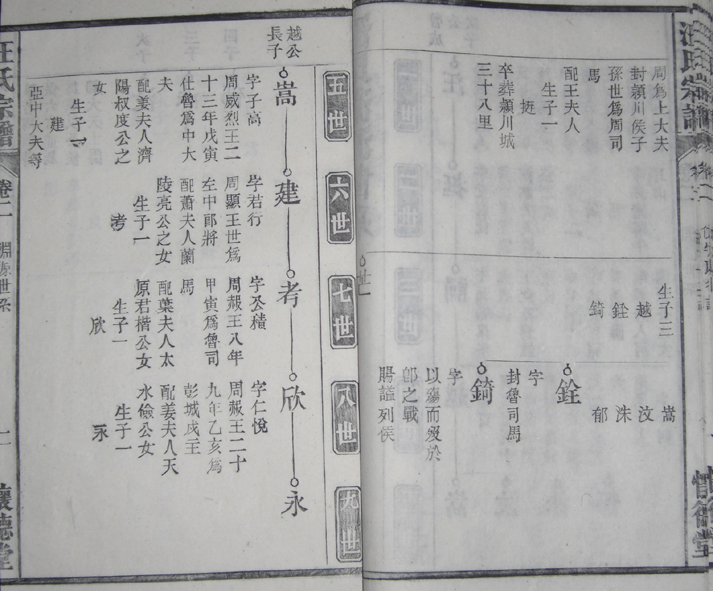 汪氏宗譜
周爲上大夫
封潁川侯子
孫世爲周司
馬
配王夫人
生子一
挺
卒葬潁川城
三十八里
生子三
越
銓
錡
嵩
汶
洙
郁
銓
字
封魯司馬
錡
字
以殤而殁於
郎之戰
賜諡列侯
五世
六世
七世
八世
九世
越公
長子
嵩
建
考
欣
永
字子高
周威烈王二
十三年戊寅
仕魯爲中大
夫
配姜夫人濟
陽叔度公之
女
生子一
建
亞中大夫等
字君行
周顯王世爲
左中郎將
配蕭夫人蘭
陵亮公之女
生子一
考
字丕積
周赧王八年
甲寅爲魯司
馬
配葉夫人太
原君楷公女
生子一
欣
字仁悅
周赧王二十
九年乙亥爲
彭城戍主
配姜夫人天
水儉公女
生子一
永
汪氏宗譜
卷二
淵源世系
懷德堂